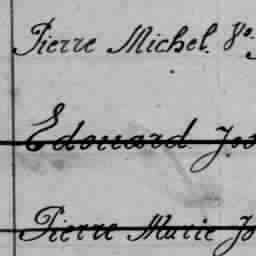 Pierre Michel
Edouard
Pierre Marie